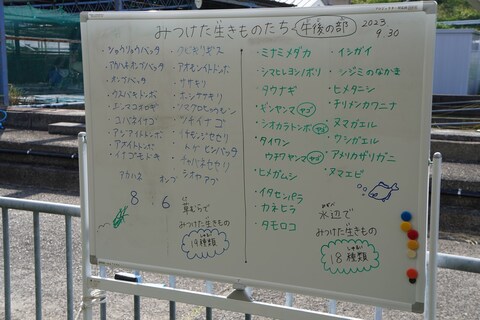 みつけた生きものたち 午後の部
2023.
9.30
ショウリョウバッタ
オンブバッタ
ウスバキトンボ
コバネイナゴ
アジアイトトンボ
アオイトトンボ
アカハネ オンブ
8 : 6
クビキリギス
アオモンイトトンボ
ササキリ
ホシササキリ
ツチイナゴ
イチモンジセセリ
トゲヒシバッタ
チャバネセセリ
草むらで
みつけた生きもの
19種類
・ミナミメダカ
・シマヒレヨシノボリ
・タウナギ
・ギンヤンマ ヤゴ
・シオカラトンボ ヤゴ
・タイワン
ウチワヤンマ ヤゴ
・ヒメガムシ
・イタセンパラ
・カネヒラ
・タモロコ
・イシガイ
・シジミのなかま
・ヒメタニシ
・チリメンカワニナ
・ヌマガエル
・ウシガエル
・アメリカザリガニ
・ヌマエビ
水辺で
みつけた生きもの
18種類